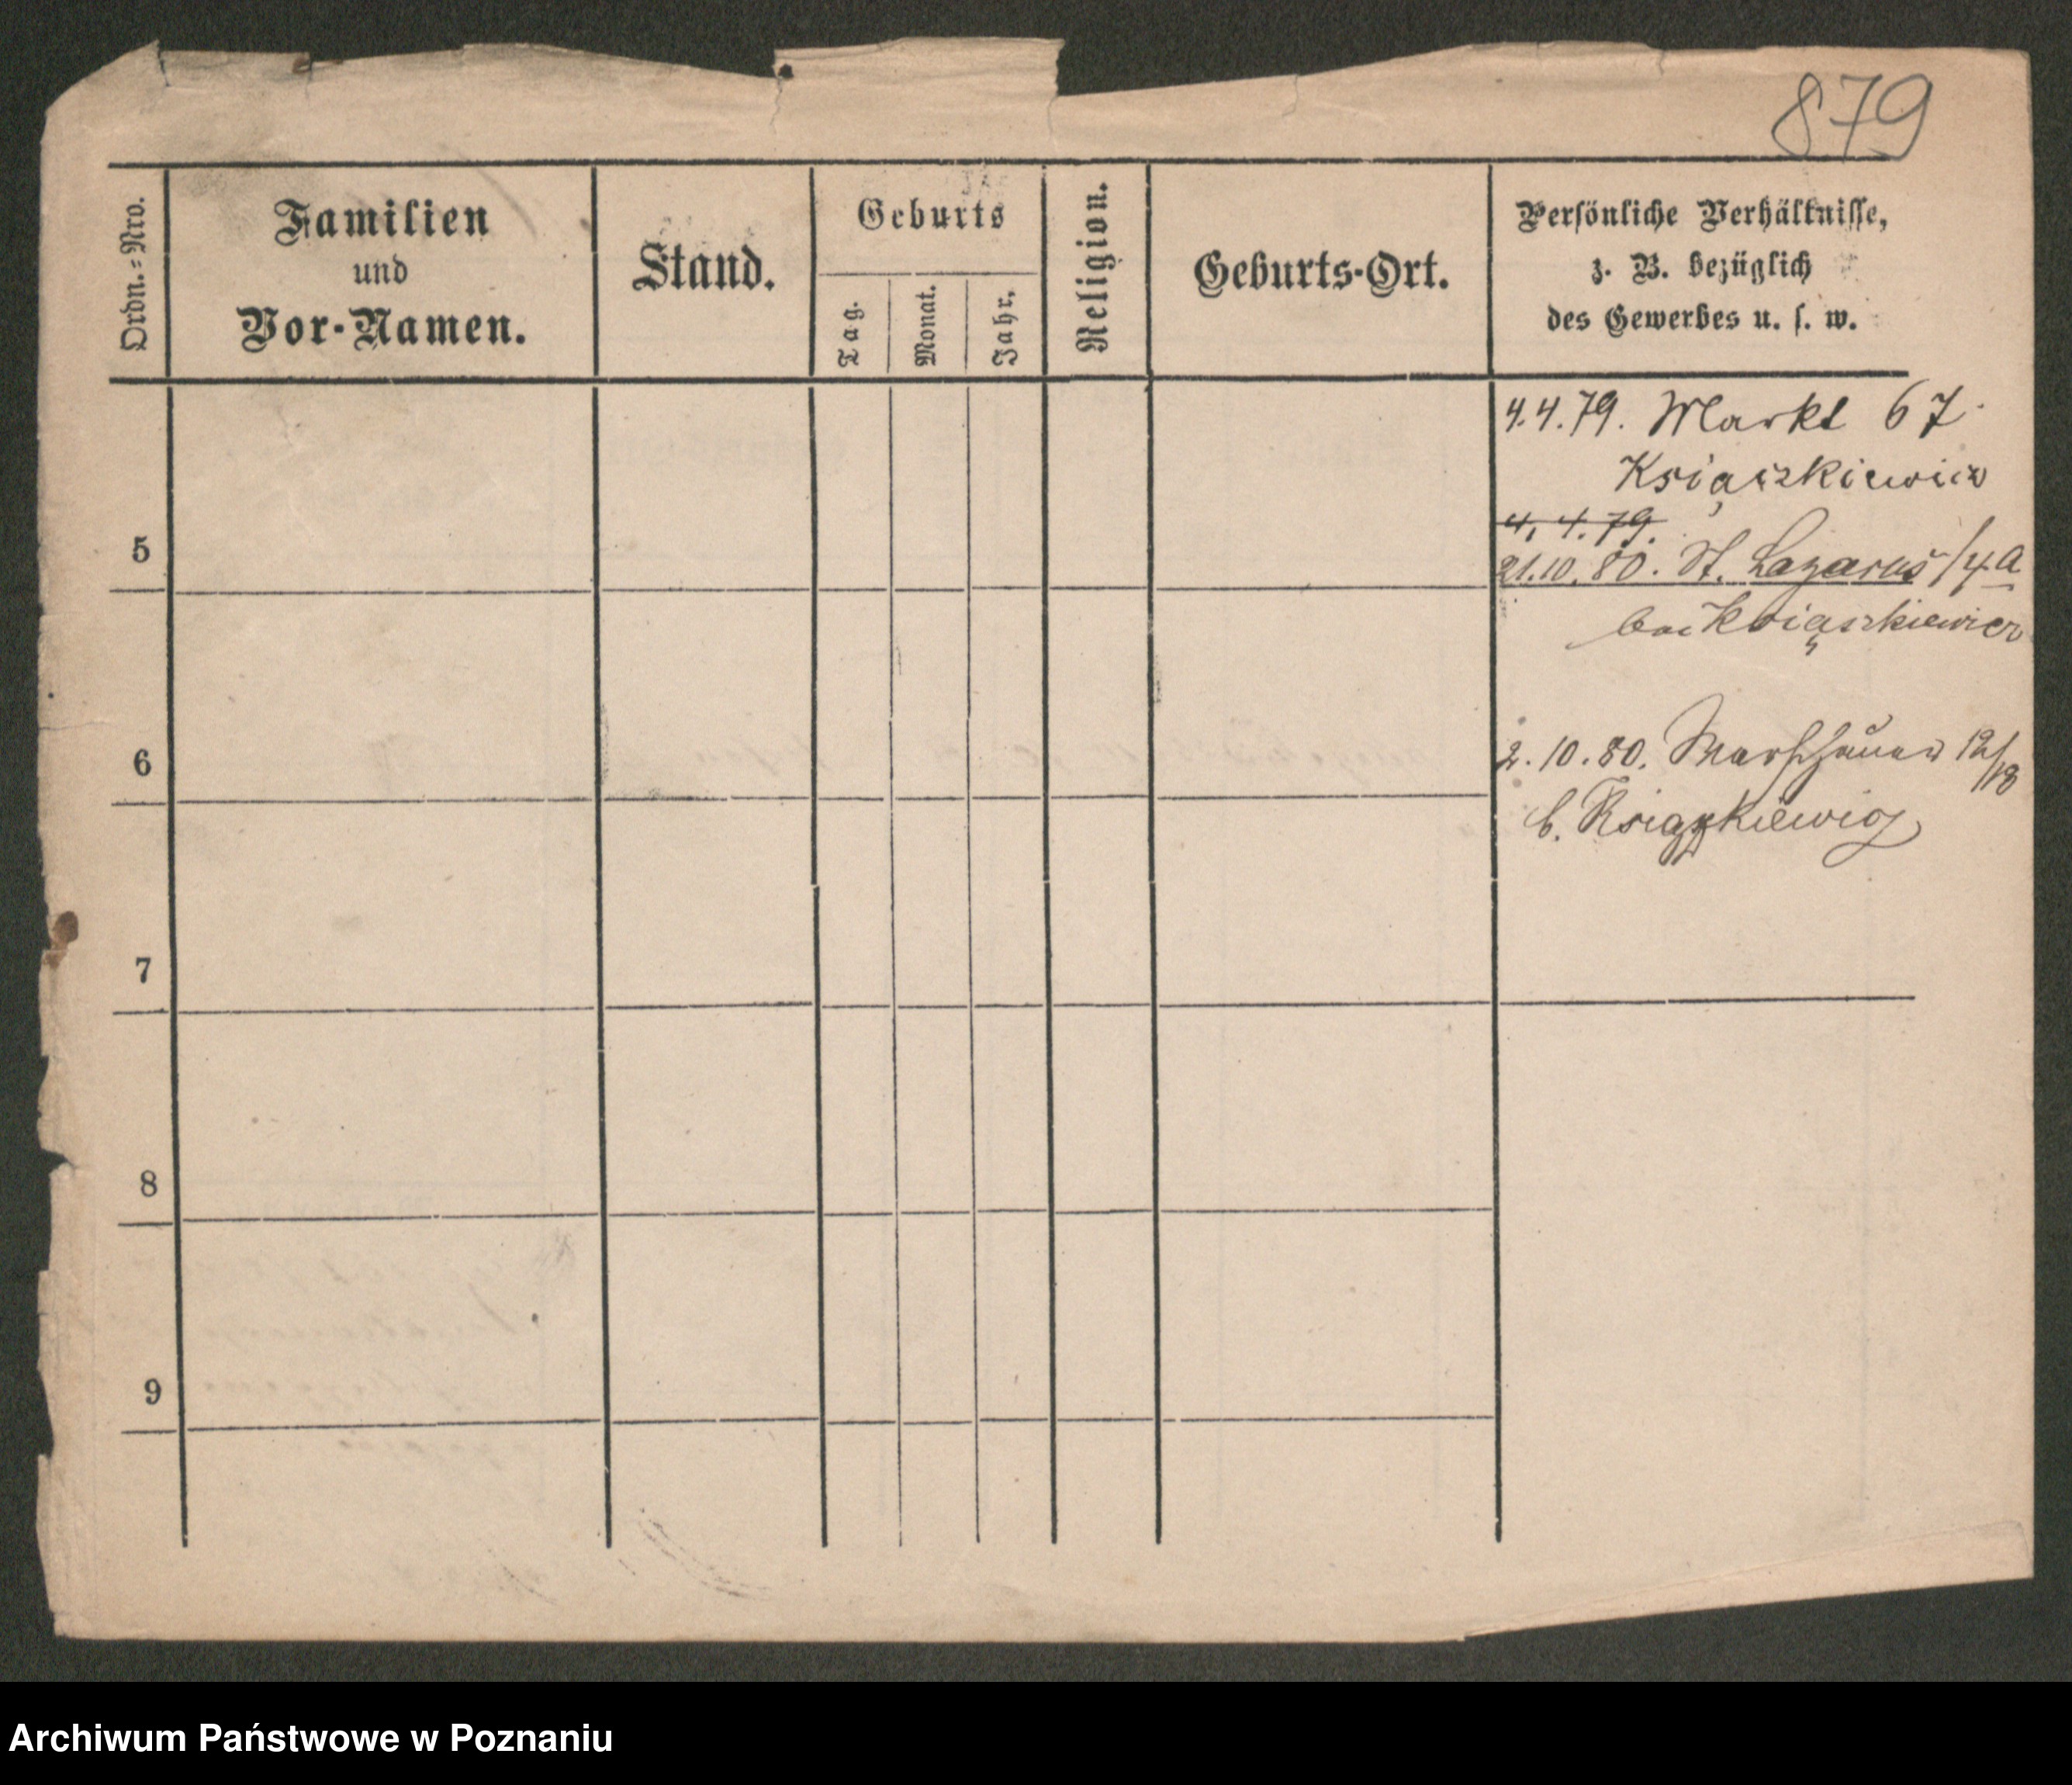 879
Ordn.=Nro.
Familien
und
Vor-Namen.
Stand.
Geburts
Tag.
Monat.
Jahr.
Religion.
Geburts-Ort.
Persönliche Verhältnisse,
z. B. bezüglich
des Gewerbes u. s. w.
4.4.79. Markt 67.
Książkiewicz
4. 4. 79.
5
21.10.80. St. Lazarus /4a
bei Książkiewicz
6
2.10.80. 12/18
b. Książkiewicz
7
8
9
Archiwum Państwowe w Poznaniu